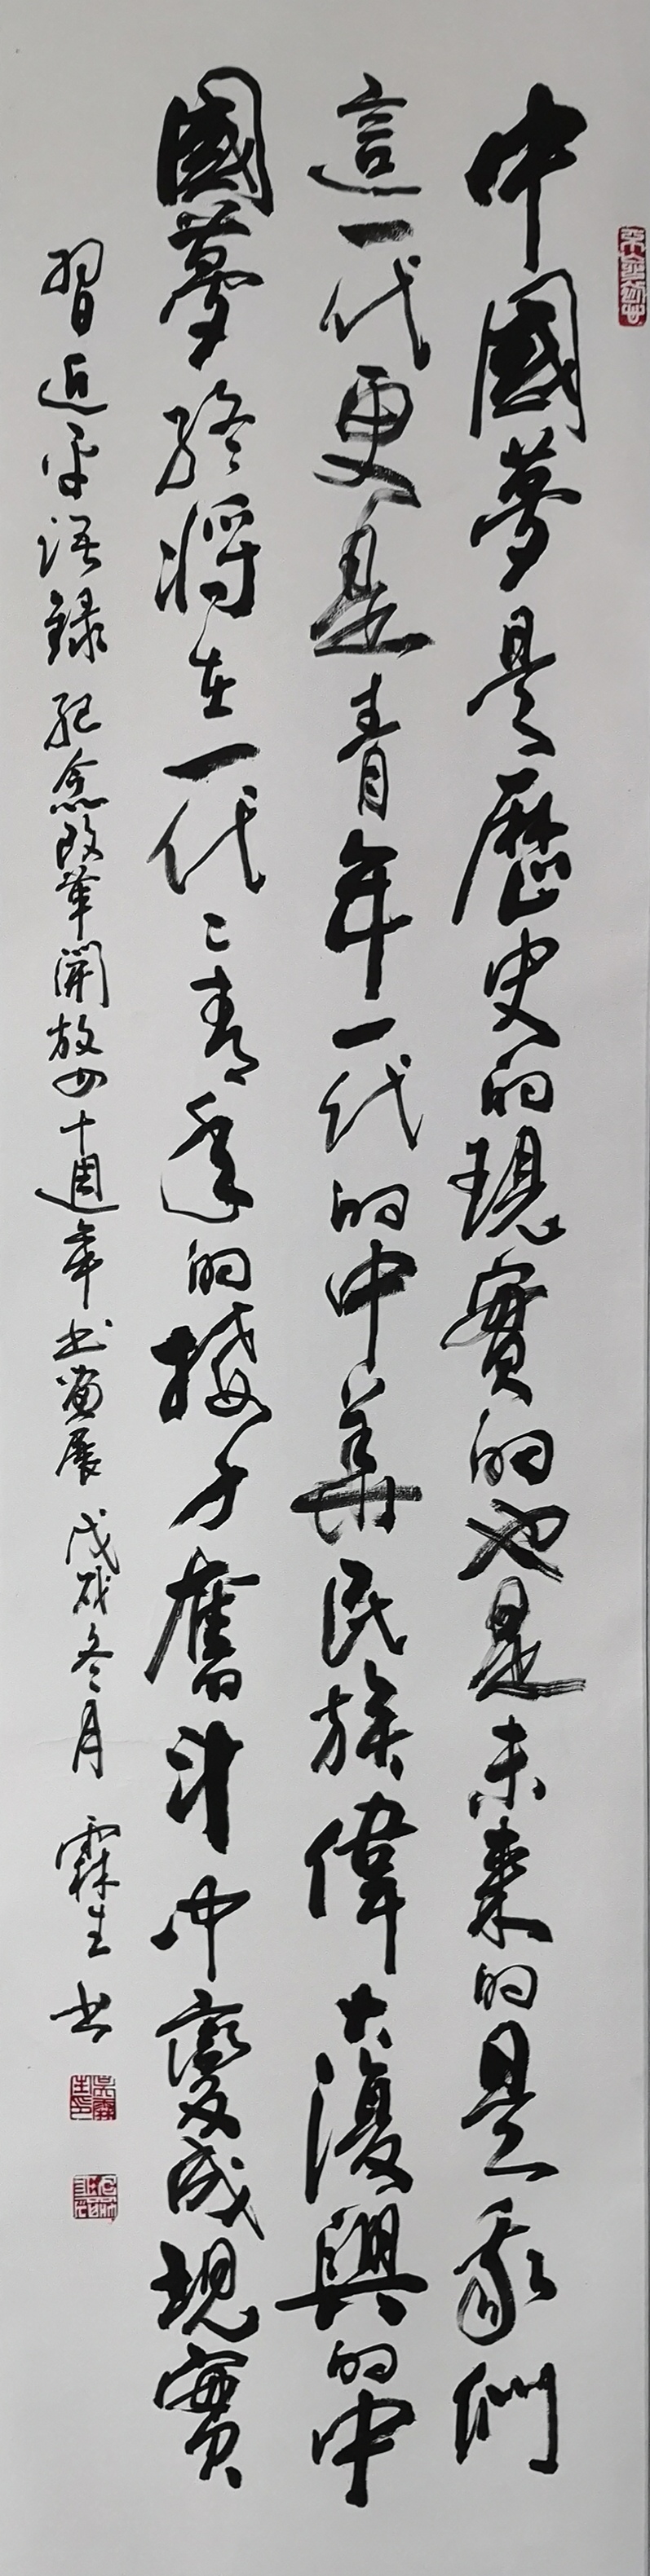 中國夢是歷史的現實的也是未來的是我們
這一代更是青年一代的中華民族偉大復興的中
國夢終將在一代〻青年的接力奮斗中變成現實
習近平語錄 紀念改革開放四十週年書畫展 戊戌冬月 霖生书